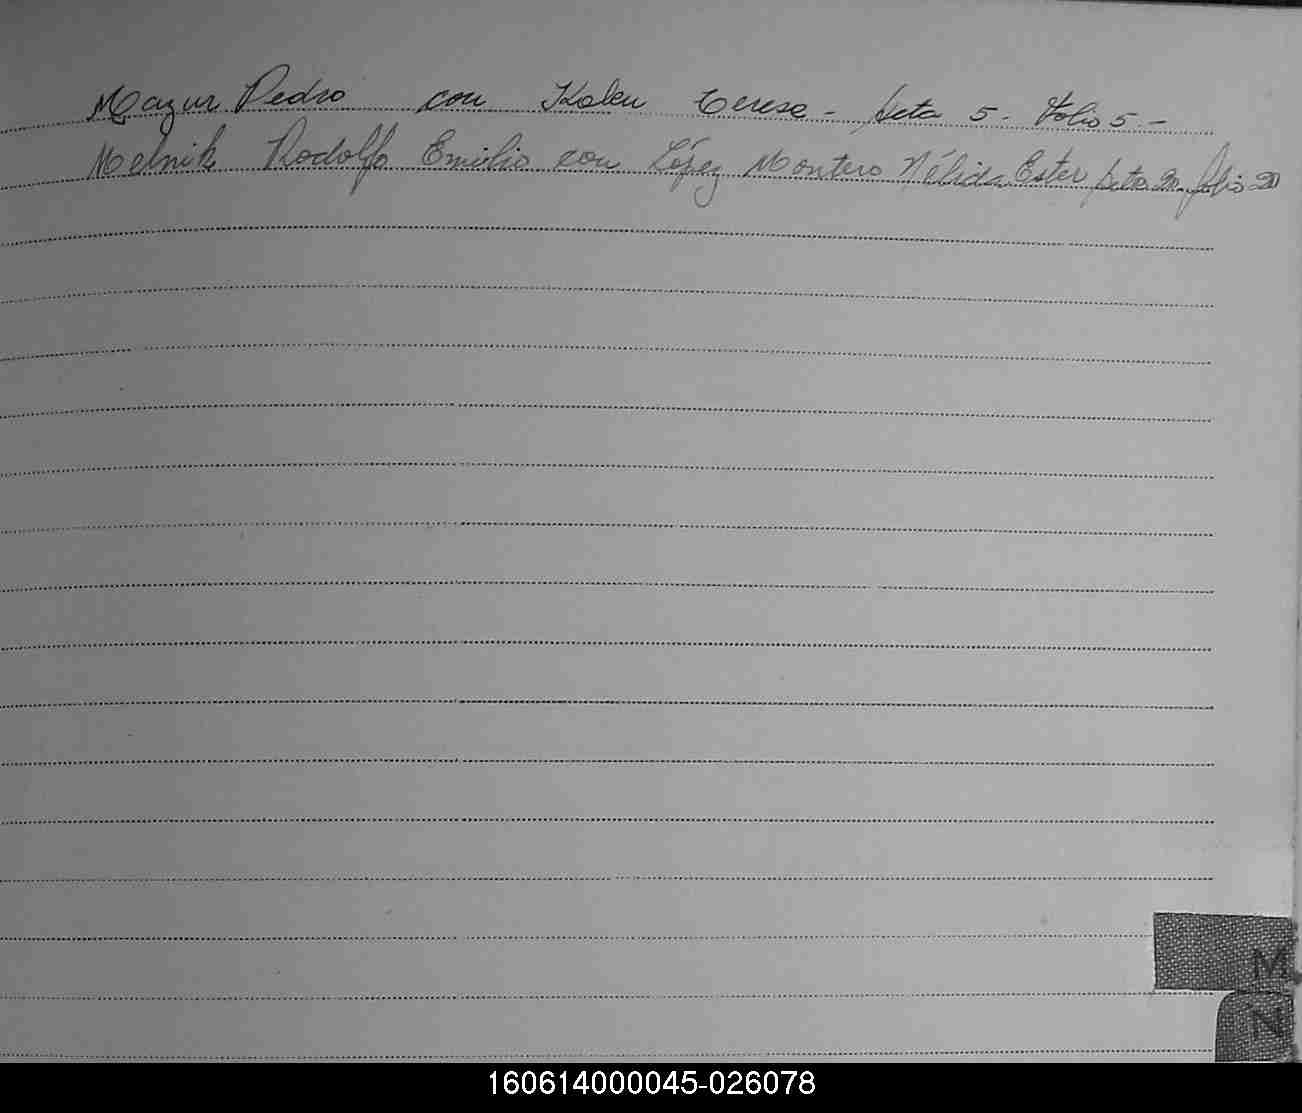 Mazur Pedro con Koleu Teresa - Acta 5 - Folio 5 -
Melnik Rodolfo Emilio con López Montero Nélida Ester Acta 20 folio 20
M
N
160614000045-026078